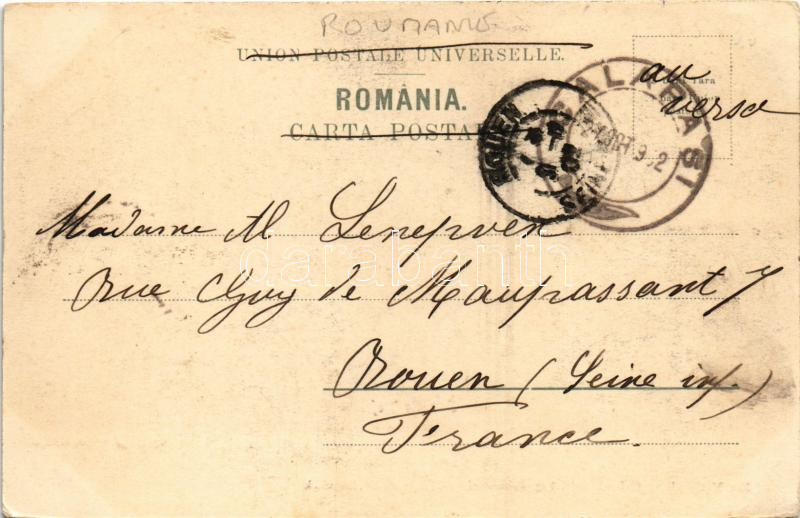 ROUMANIE
UNION POSTALE UNIVERSELLE.
ROMÂNIA.
CARTA POSTA
au
verso
CALARASI
ROUEN
Madame M Lenepven
Rue Guy de Maupassant 7
Rouen (Seine inf.)
France.
darabanth